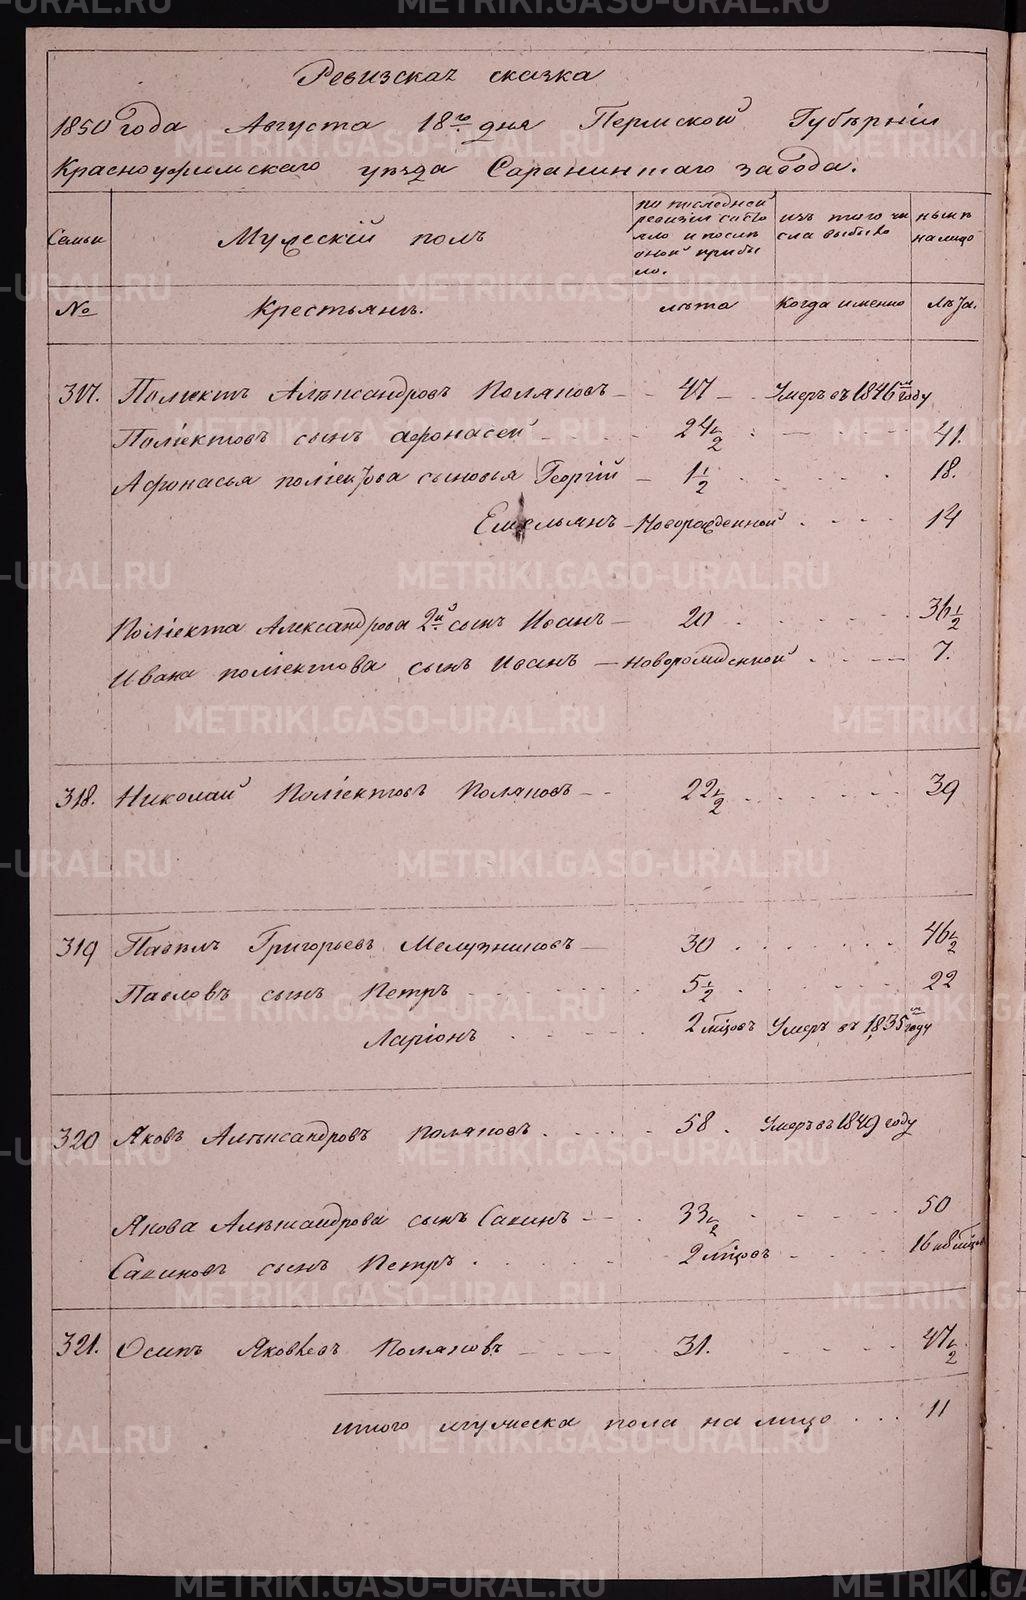 Ревизская сказка
1850 года Августа 18го дня Пермской Губерніи
Красноуфимскаго уезда Саранинскаго завода.
Семьи Мужескій полъ по последней ревизіи состояло и после оной прибыло. изъ того числа выбыло ныне на лицо
№ Крестьянъ. лета Когда именно Лета.
317. Поліектъ Александровъ Поляковъ 47 Умеръ въ 1846м году
Поліектовъ сынъ Афонасей 24½ 41.
Афонасья поліектова сыновья Георгій 1½ 18.
Емельянъ Новорожденной 14
Поліекта Александрова 2й сынъ Иванъ 20 36½
Ивана поліектова сынъ Иванъ новорожденной 7.
318. Николай Поліектовъ Поляковъ 22½ 39
319 Павелъ Григорьевъ 30 46½
Павловъ сынъ Петръ 5½ 22
Ларіонъ 2 мѣцовъ Умеръ въ 1835м году
320 Яковъ Александровъ Поляковъ 58. Умеръ въ 1849 году
Якова Александрова сынъ 33½ 50
сынъ Петръ 2 мѣцовъ 16
321. Осипъ Яковлевъ Поляковъ 31. 47½
итого мужеска пола на лицо 11
METRIKI.GASO-URAL.RU